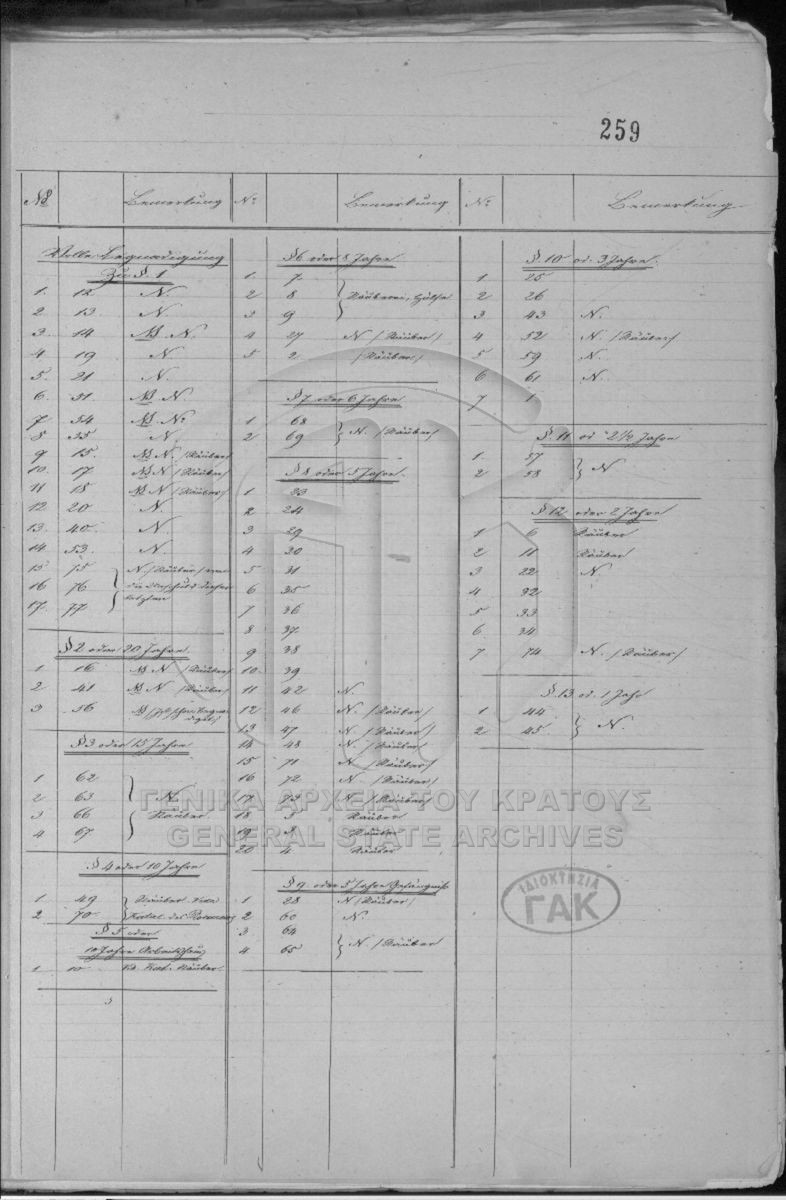 259
No Bemerkung
Volle Begnadigung
Zu § 1
1. 12 N.
2 13. N
3. 14 NB N.
4 19 N
5. 21 N.
6. 51 NB N.
7 54 NB N.
8 55 N.
9 15. NB N. /Räuber/
10. 17 NB N /Räuber/
11 18 NB N /Räuber/
12. 20 N.
13. 40. N.
14. 53. N
15 75 N. /Räuber/
16 76 die
17. 77 letzten
§ 2 oder 20 Jahre.
1 16 NB N /Räuber/
2 41 NB N /Räuber/
3 56 NB
§ 3 oder 15 Jahre
1 62
2 63 N.
3 66 Räuber
4 67
§ 4 oder 10 Jahre
1 49 Räuber
2 70 des
§ 5 oder
10 Jahre Arbeitshaus
1 10 Räuber
No Bemerkung
§ 6 oder 8 Jahre
1. 7
2 8 Räuberei, Hülfe
3 9
4 27 N /Räuber/
5 2 /Räuber/
§ 7 oder 6 Jahre
1 68
2 69 N. /Räuber/
§ 8 oder 5 Jahre.
1 23
2 24
3 29
4 30
5 31
6 35
7 36
8 37
9 38
10. 39
11 42 N.
12 46 N. /Räuber/
13 47 N. /Räuber/
14 48 N. /Räuber/
15 71 N /Räuber/
16 72 N /Räuber/
17 73 N. /Räuber/
18 5 Räuber
19 3 Räuber
20 4 Räuber
§ 9. oder 5 Jahre Gefängniß
1 28 N /Räuber/
2 60 N.
3 64
4 65 N. /Räuber
No Bemerkung
§ 10 od. 3 Jahre.
1 25
2 26
3 43 N.
4 52 N. /Räuber/
5 59 N.
6 61 N.
7 1
§ 11 od 2 1/2 Jahre
1. 57
2 58 N
§ 12 oder 2 Jahre
1 6 Räuber
2 11 Räuber
3 22 N.
4 32
5 33
6. 34
7 74 N. /Räuber/
§ 13 od. 1 Jahr
1 44
2 45 N.
ΓΕΝΙΚΑ ΑΡΧΕΙΑ ΤΟΥ ΚΡΑΤΟΥΣ
GENERAL STATE ARCHIVES
ΙΔΙΟΚΤΗΣΙΑ
ΓΑΚ